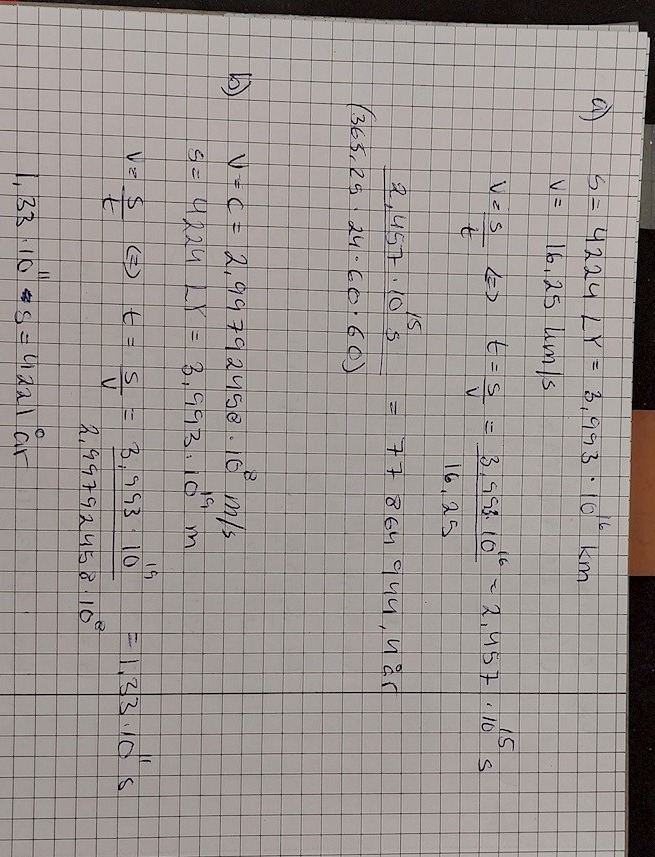 a) S = 4224 LY = 3,993 · 10¹⁶ km
V = 16,25 km/s
V = S/t <=> t = S/V = 3,993·10¹⁶/16,25 = 2,457 · 10¹⁵ s
2,457 · 10¹⁵ s / (365,25 · 24 · 60 · 60) = 77 864 944,4 år
b) V = C = 2,99792458 · 10⁸ m/s
S = 4224 LY = 3,993 · 10¹⁹ m
V = S/t <=> t = S/V = 3,993 · 10¹⁹/2,99792458 · 10⁸ = 1,33 · 10¹¹ s
1,33 · 10¹¹ s = 4221 år